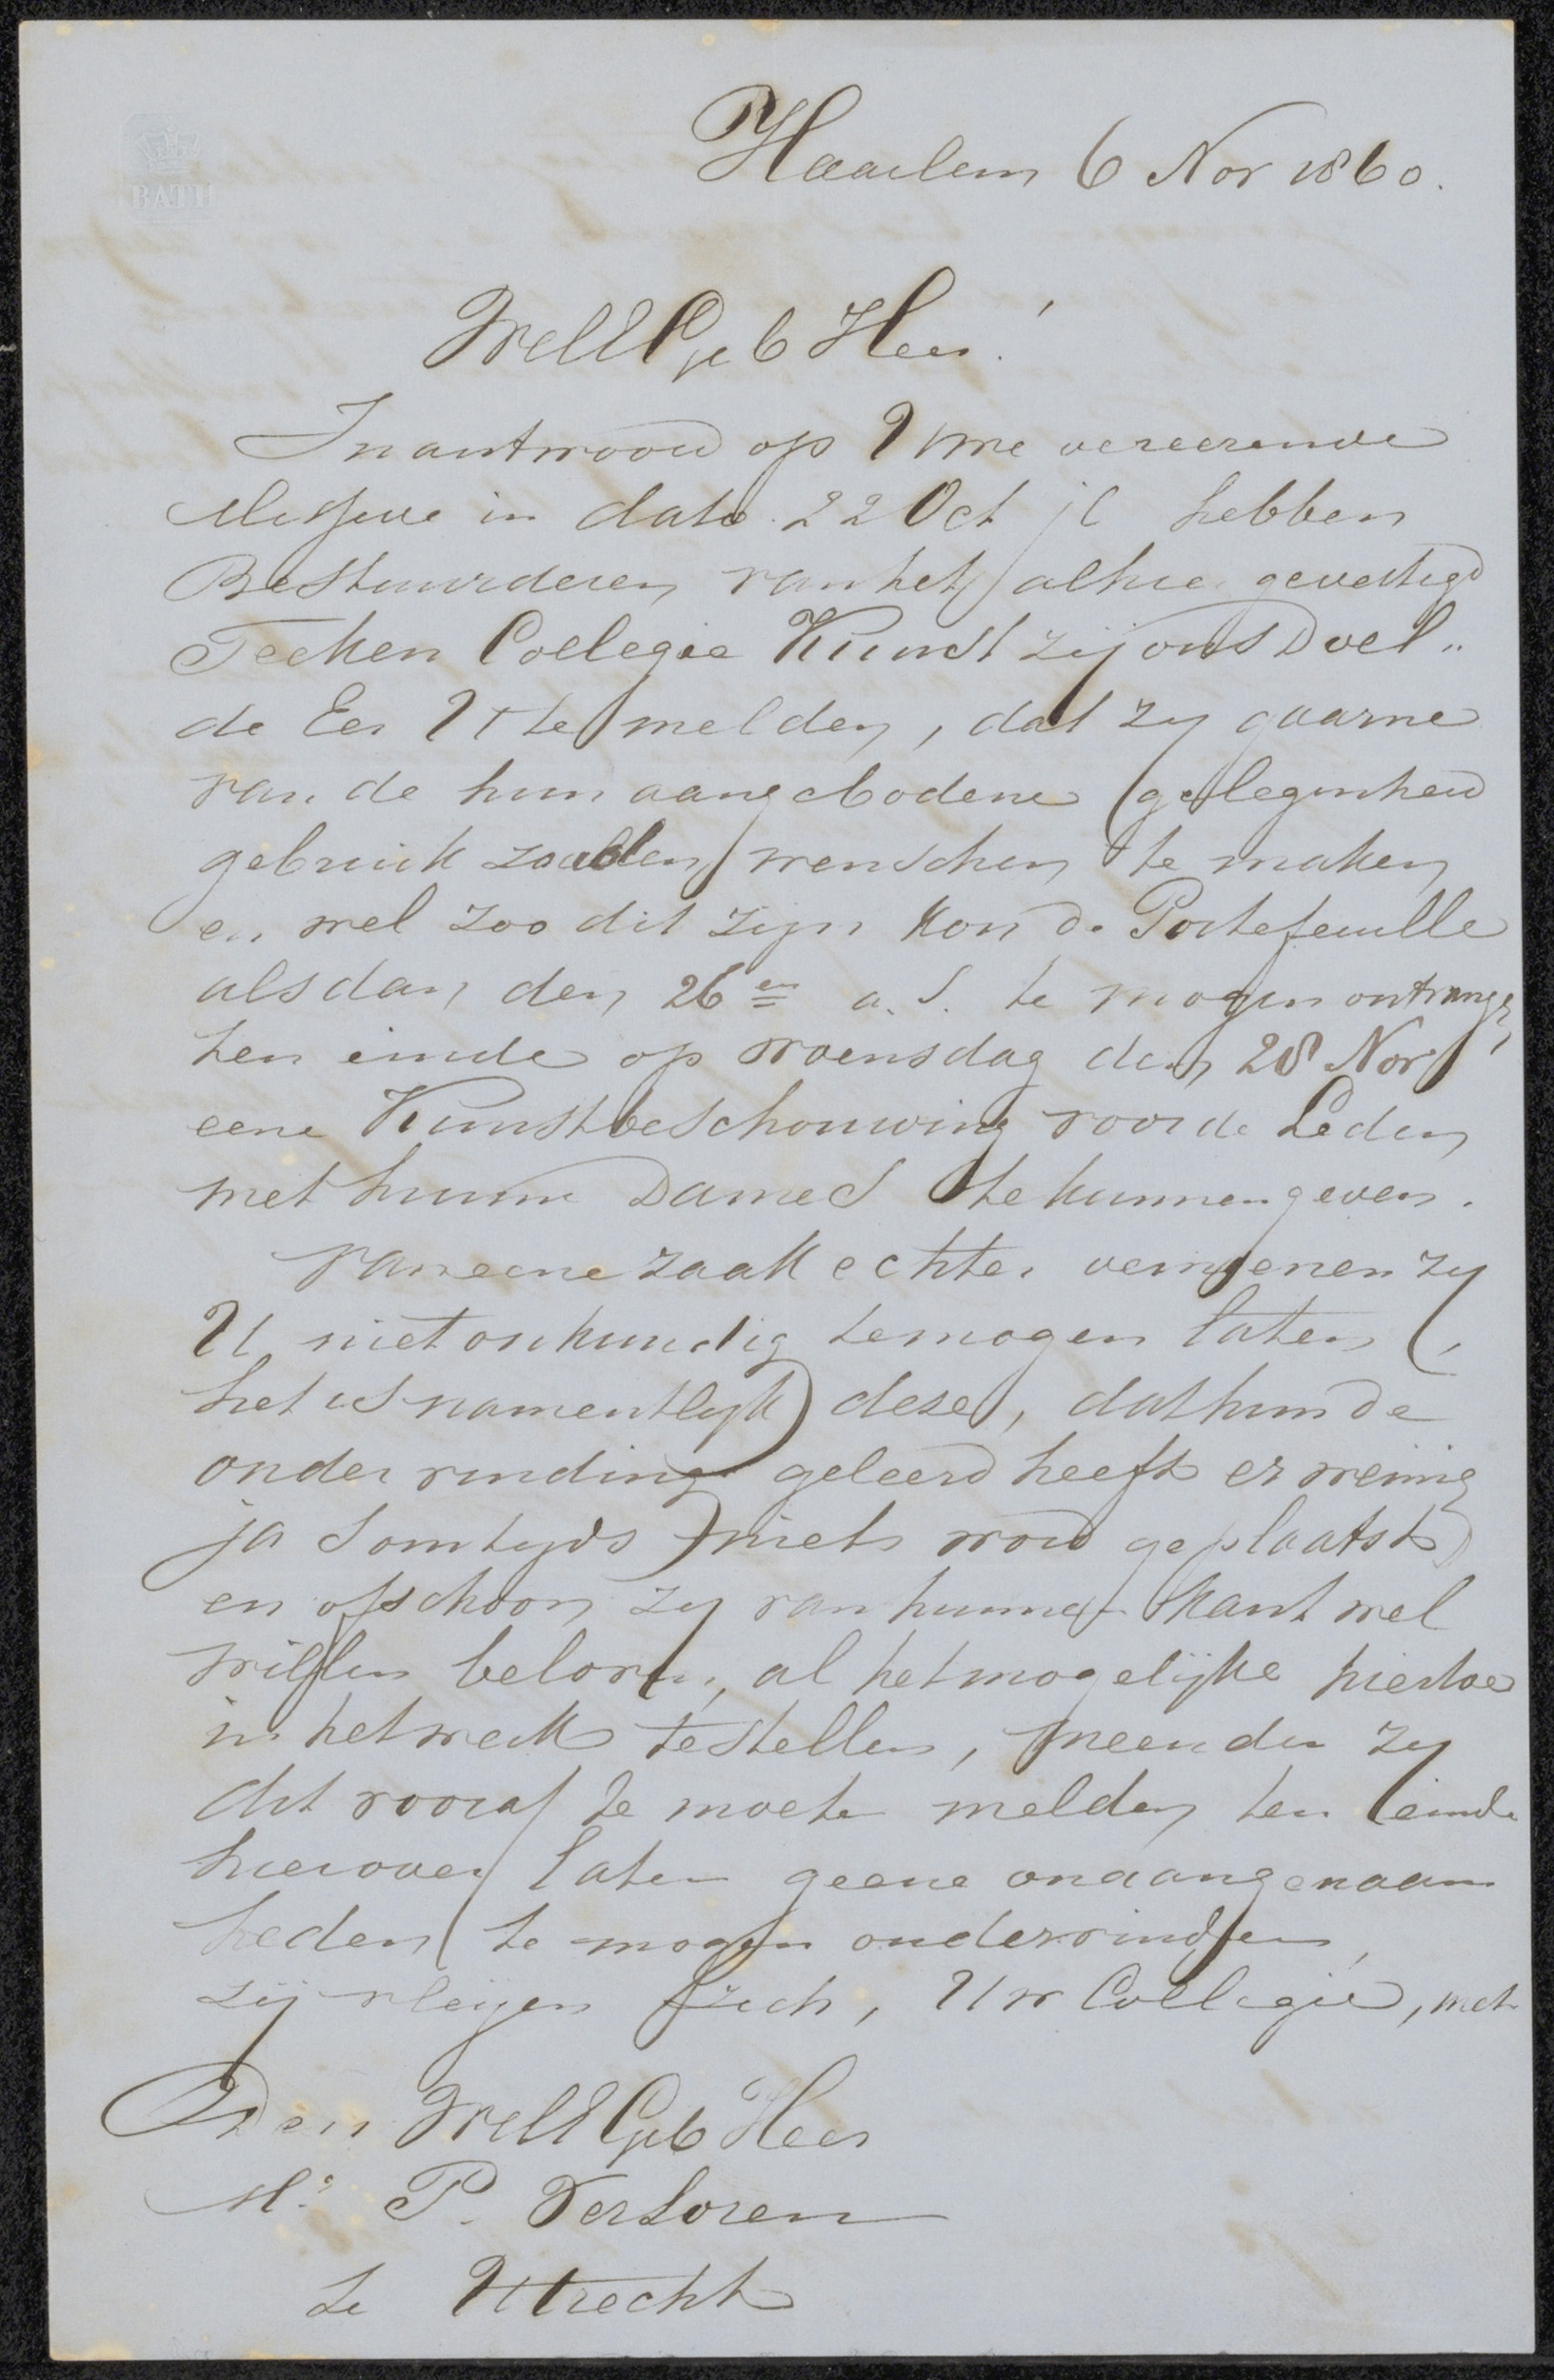 BATH
Haarlem 6 Nov 1860.
WelEGeb Heer!
In antwoord op Uwe vereerende
Missive in dato 22 Oct jl hebben
Bestuurderen van het alhier gevestigd
Teeken Collegie Kunst zij ons Doel"
de Eer U te melden, dat zy gaarne
van de hun aangebodene gelegenheid
gebruik zouden wenschen te maken
en wel zoo dit zijn kon de Portefeuille
alsdan den 26en a.s. te mogen ontvangen,
ten einde op woensdag den 28 Nov
eene Kunstbeschouwing voor de Leden
met hunne Dames te kunnen geven.
Van eene zaak echter vermeenen zy
U niet onkundig te mogen laten,
het is namentlyk deze, dat hun de
ondervinding geleerd heeft er weinig
ja somtyds niets word geplaatst
en ofschoon zy van hunnen kant wel
willen beloven, al het mogelijke hiertoe
in het werk te stellen, meenden zy
dit vooraf te moeten melden ten einde
hierover later geene onaangenaam
heden te mogen ondervinden,
zij vleijen zich, Uw Collegie, met
Den WelEGeb Heer
Mr. P. VerLoren
te Utrecht